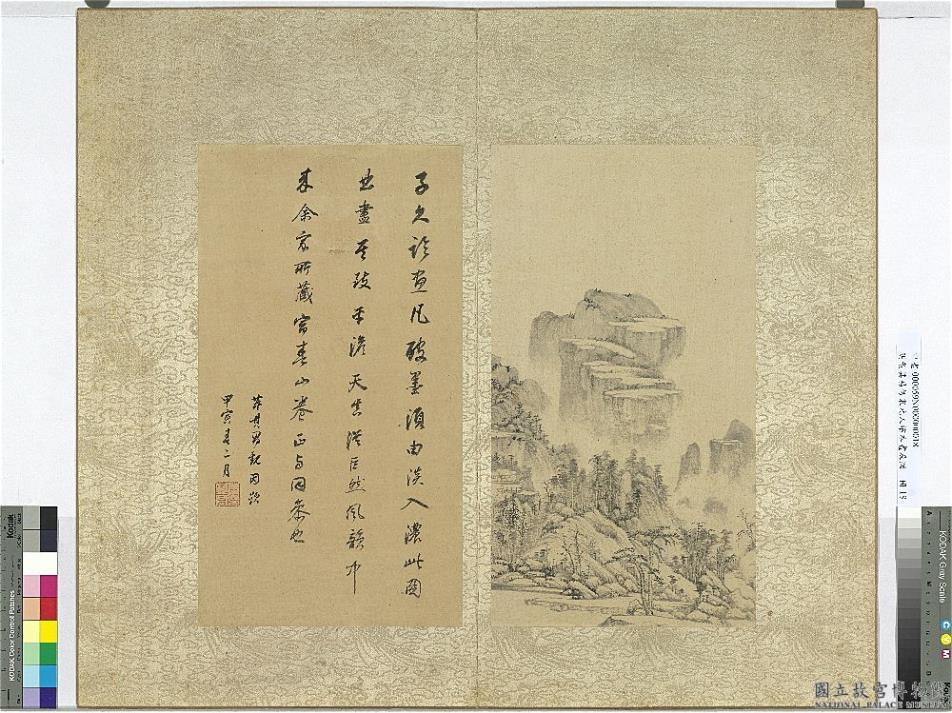 子久論畫凡破墨須由淡入濃此圖
曲盡其致平淡天真從巨然風韻中
來余家所藏富春山卷正與同參也
甲寅春二月
國立故宮博物院
NATIONAL PALACE MUSEUM
Kodak
KODAK Color Control Patches
KODAK Gray Scale
C
Y
M